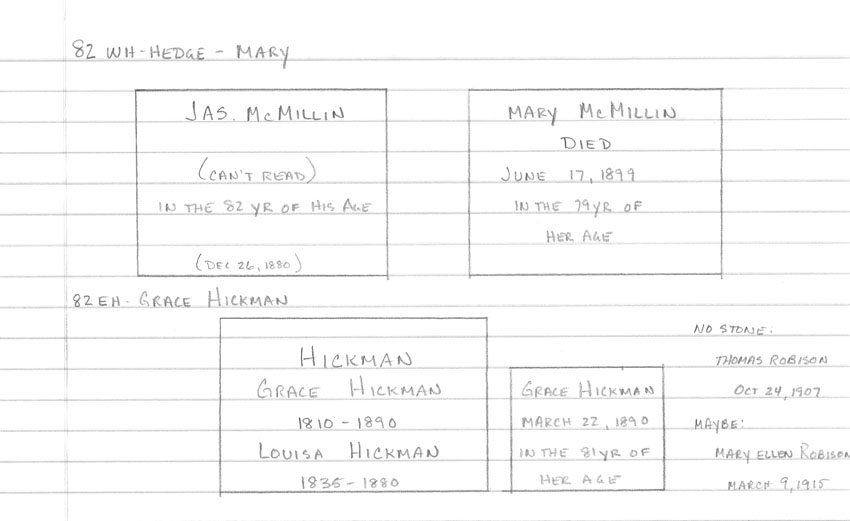 82 WH-HEDGE - MARY
JAS. McMILLIN
(CAN'T READ)
IN THE 82 YR OF HIS AGE
(DEC 26, 1880)
MARY McMILLIN
DIED
JUNE 17, 1899
IN THE 79 YR OF
HER AGE
82 EH - GRACE HICKMAN
HICKMAN
GRACE HICKMAN
1810 - 1890
LOUISA HICKMAN
1835 - 1880
GRACE HICKMAN
MARCH 22, 1890
IN THE 81 YR OF
HER AGE
NO STONE:
THOMAS ROBISON
OCT 24, 1907
MAYBE:
MARY ELLEN ROBISON
MARCH 9, 1915